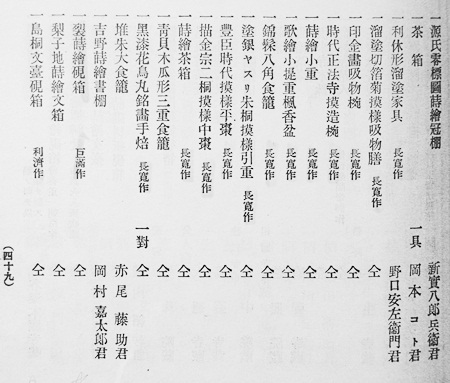 一 源氏零標圖蒔繪冠棚 新實八郎兵衞君
一 茶箱 一具 岡本コト君
一 利休形溜塗家具 長寬作 野口安左衞門君
一 溜塗切箔菊摸樣吸物膳 長寬作 仝
一 印金畫吸物椀 長寬作 仝
一 時代正法寺摸造椀 長寬作 仝
一 蒔繪小重 長寬作 仝
一 歌繪小提重楓香盆 長寬作 仝
一 錦八角食籠 長寬作 仝
一 塗銀ヤスリ朱桐摸樣引重 長寬作 仝
一 豐臣時代摸樣平棗 長寬作 仝
一 描金宗二桐摸樣中棗 長寬作 仝
一 蒔繪茶箱 長寬作 仝
一 靑貝木瓜形三重食籠 仝
一 黑漆花鳥丸銘畫手焙 長寬作 一對 仝
一 堆朱大食籠 赤尾藤助君
一 吉野蒔繪書棚 岡村嘉太郎君
一 蒔繪硯箱 巨滿作 仝
一 梨子地蒔繪文箱 仝
一 島桐文臺硯箱 利濟作 仝
(四十九)